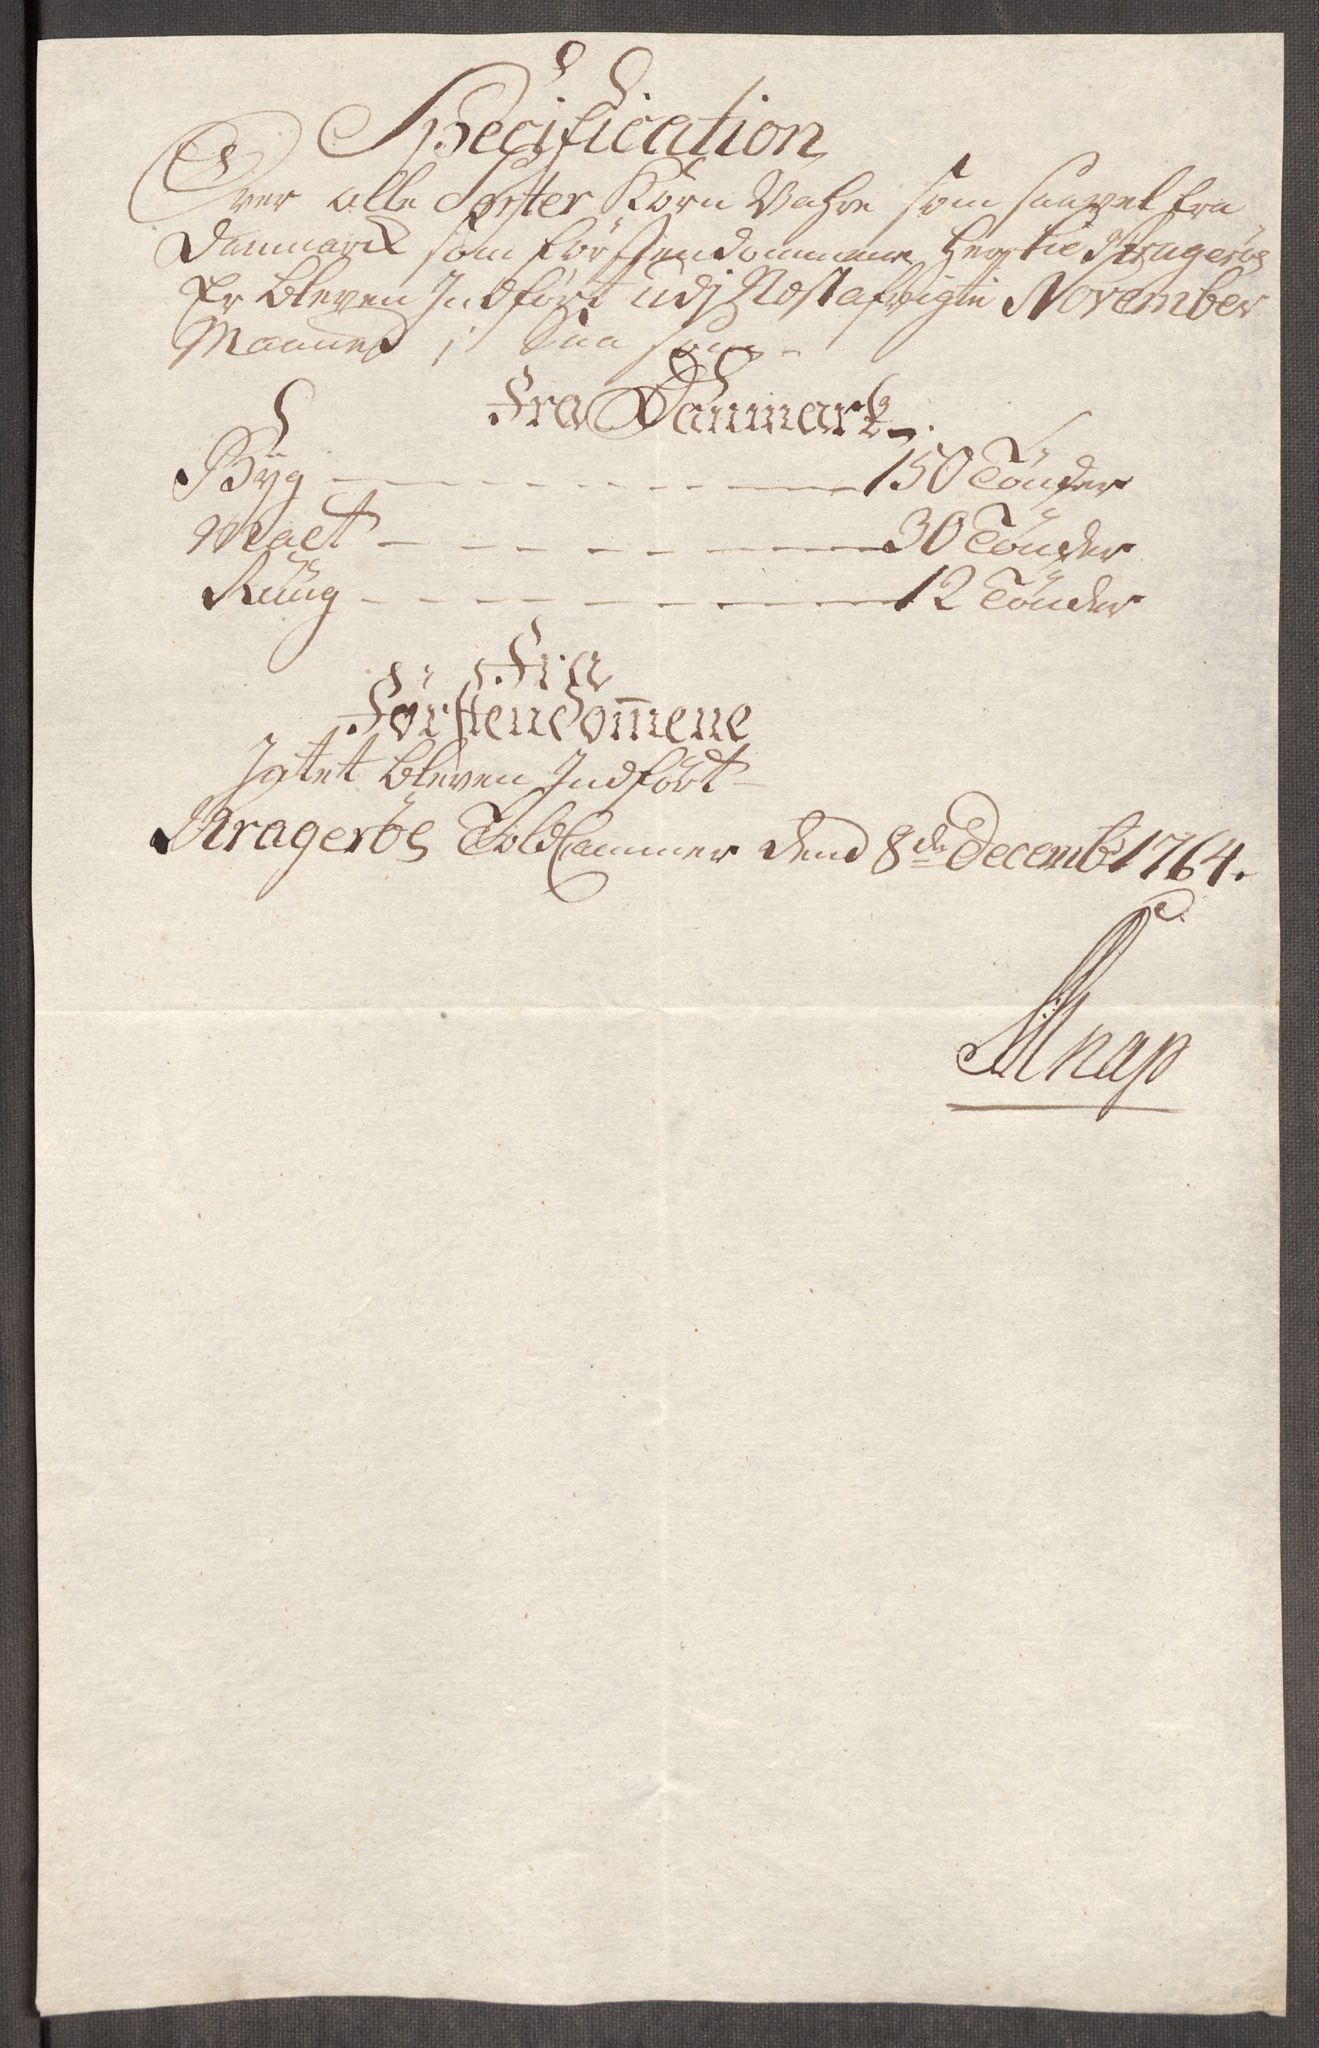 Specification
Over alle Sorter Korn Vahre som saavel fra
Danmarck som förstendommene her til Kragerös
Er bleven Indfört udj Næst afvigte November
Maaned, Saa som
Fra Danmark
Byg 150 Tönder
Malt 30 Tönder
Rüüg 12 Tönder
Fra
Förstendom̅ene
Intet bleven Indfört
Kragerös Told Cammer dend 8de Decembr 1764.
Knap